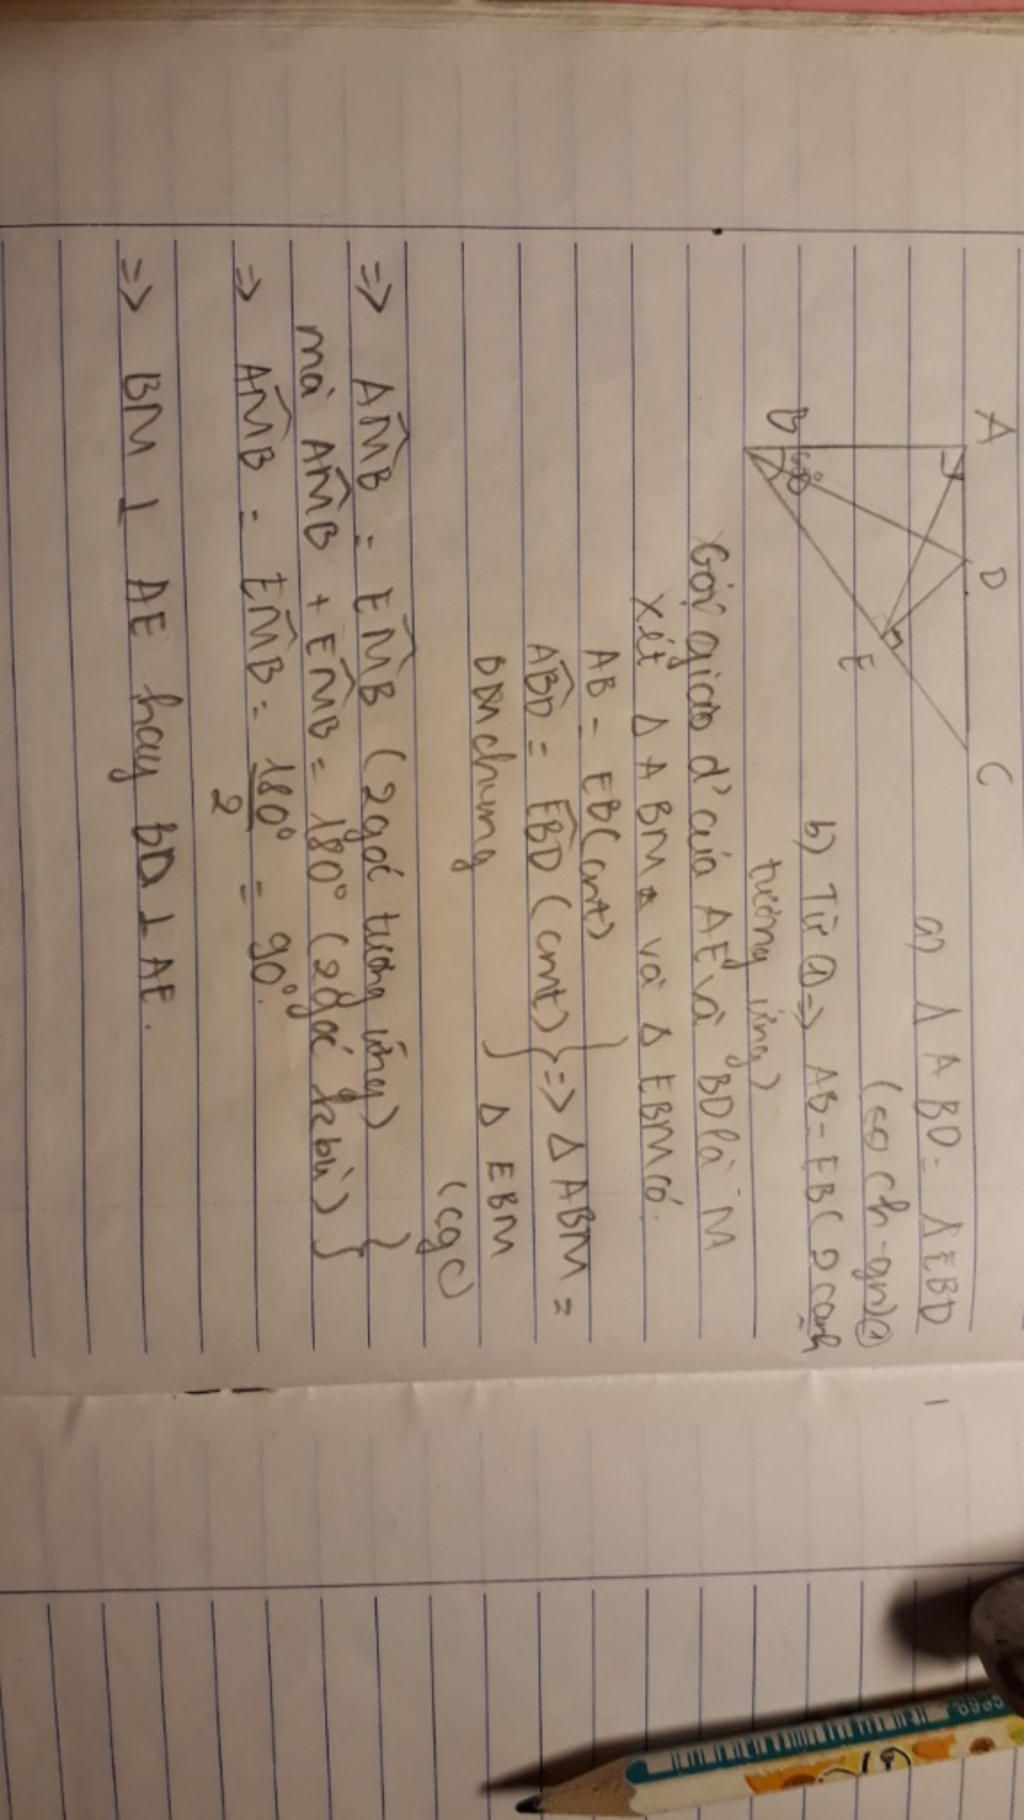 A
D
C
B
E
a) Δ ABD = Δ EBD
(ch-gn) ①
b) Từ ① => AB = EB (2 cạnh
tương ứng)
Gọi giao đ' của AE và BD là M
Xét Δ ABM và Δ EBM có:
AB = EB (cmt)
ABD = EBD (cmt) } => Δ ABM =
BM chung
Δ EBM
(cgc)
=> AMB = EMB (2 góc tương ứng)
mà AMB + EMB = 180° (2 góc kbù) }
=> AMB = EMB = 180°/2 = 90°.
=> BM ⊥ AE hay BD ⊥ AE.